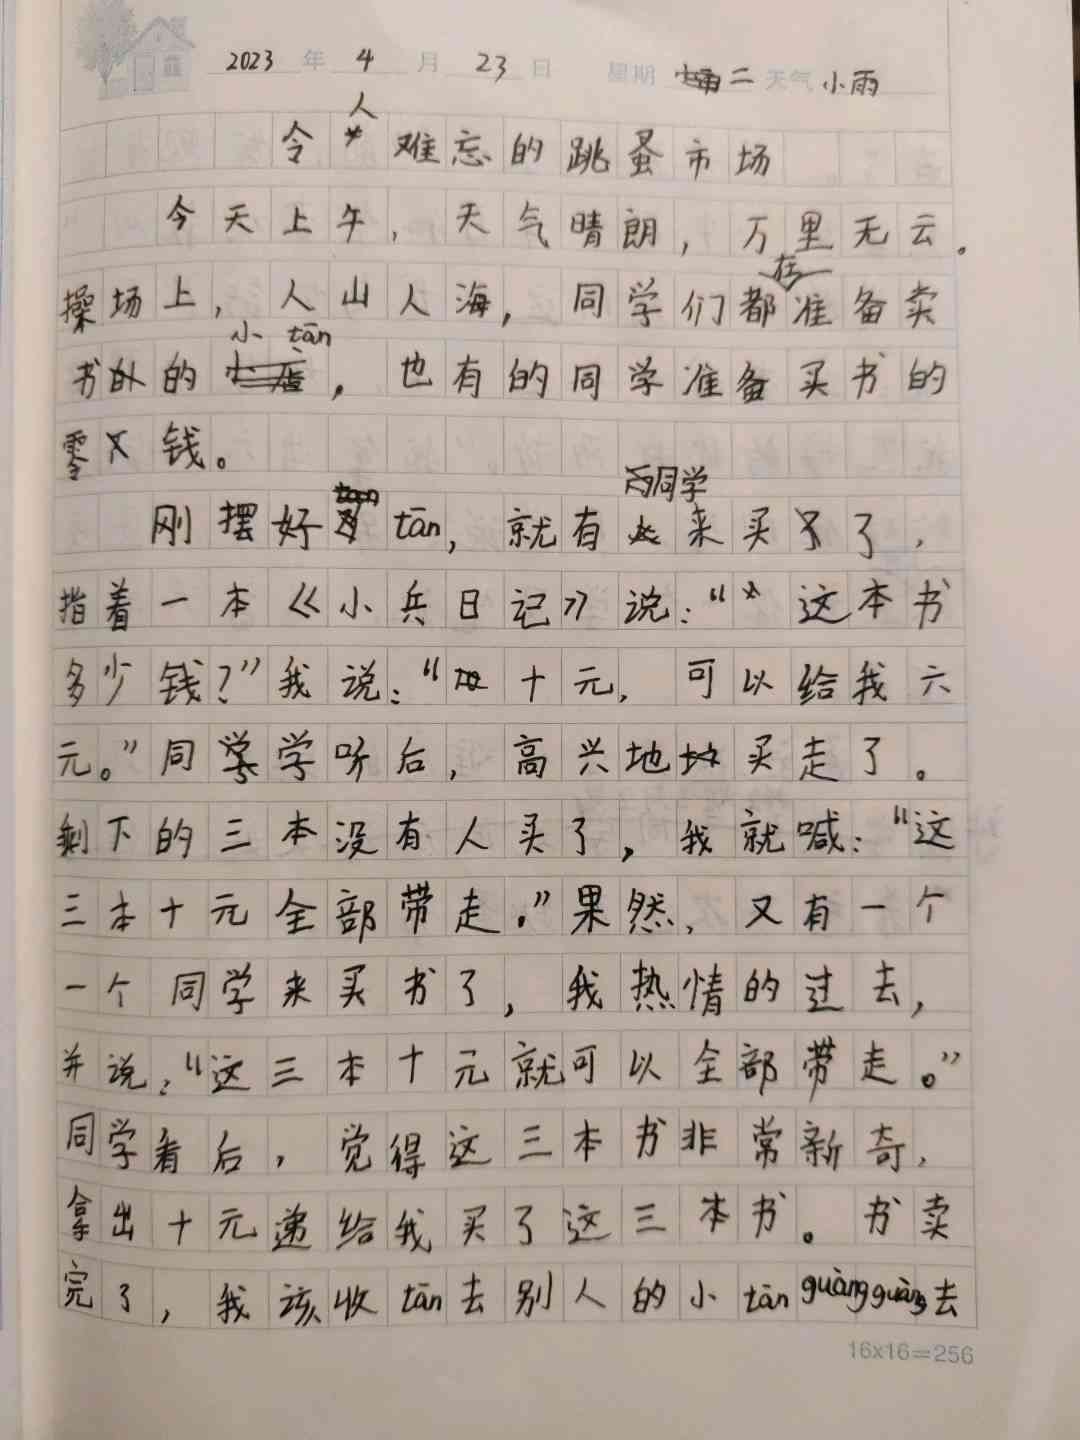 2023年4月23日 星期二 天气小雨
令人难忘的跳蚤市场
今天上午，天气晴朗，万里无云。
操场上，人山人海，同学们都在准备卖
书的小tān，也有的同学准备买书的
零钱。
刚摆好tān，就有两同学来买了，
指着一本《小兵日记》说：“这本书
多少钱？”我说：“十元，可以给我六
元。”同学听后，高兴地买走了。
剩下的三本没有人买了，我就喊：“这
三本十元全部带走。”果然，又有一个
一个同学来买书了，我热情的过去，
并说：“这三本十元就可以全部带走。”
同学看后，觉得这三本书非常新奇，
拿出十元递给我买了这三本书。书卖
完了，我该收tān去别人的小tān guàng guàng去
16x16=256